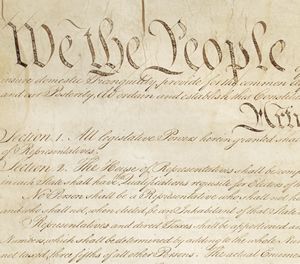 We the People
insure domestic Tranquility, provide for the common
and our Posterity, do ordain and establish this Constit
Arti
Section. 1. All legislative Powers herein granted shall
of Representatives.
Section. 2. The House of Representatives shall be comp
in each State shall have Qualifications requisite for Electors of
No Person shall be a Representative who shall not ha
and who shall not, when elected, be an Inhabitant of that State
Representatives and direct Taxes shall be apportioned a
Numbers, which shall be determined by adding to the whole Num
not taxed, three fifths of all other Persons. The actual Enumer